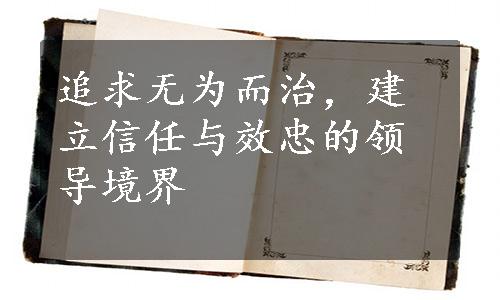 追求无为而治，建
立信任与效忠的领
导境界